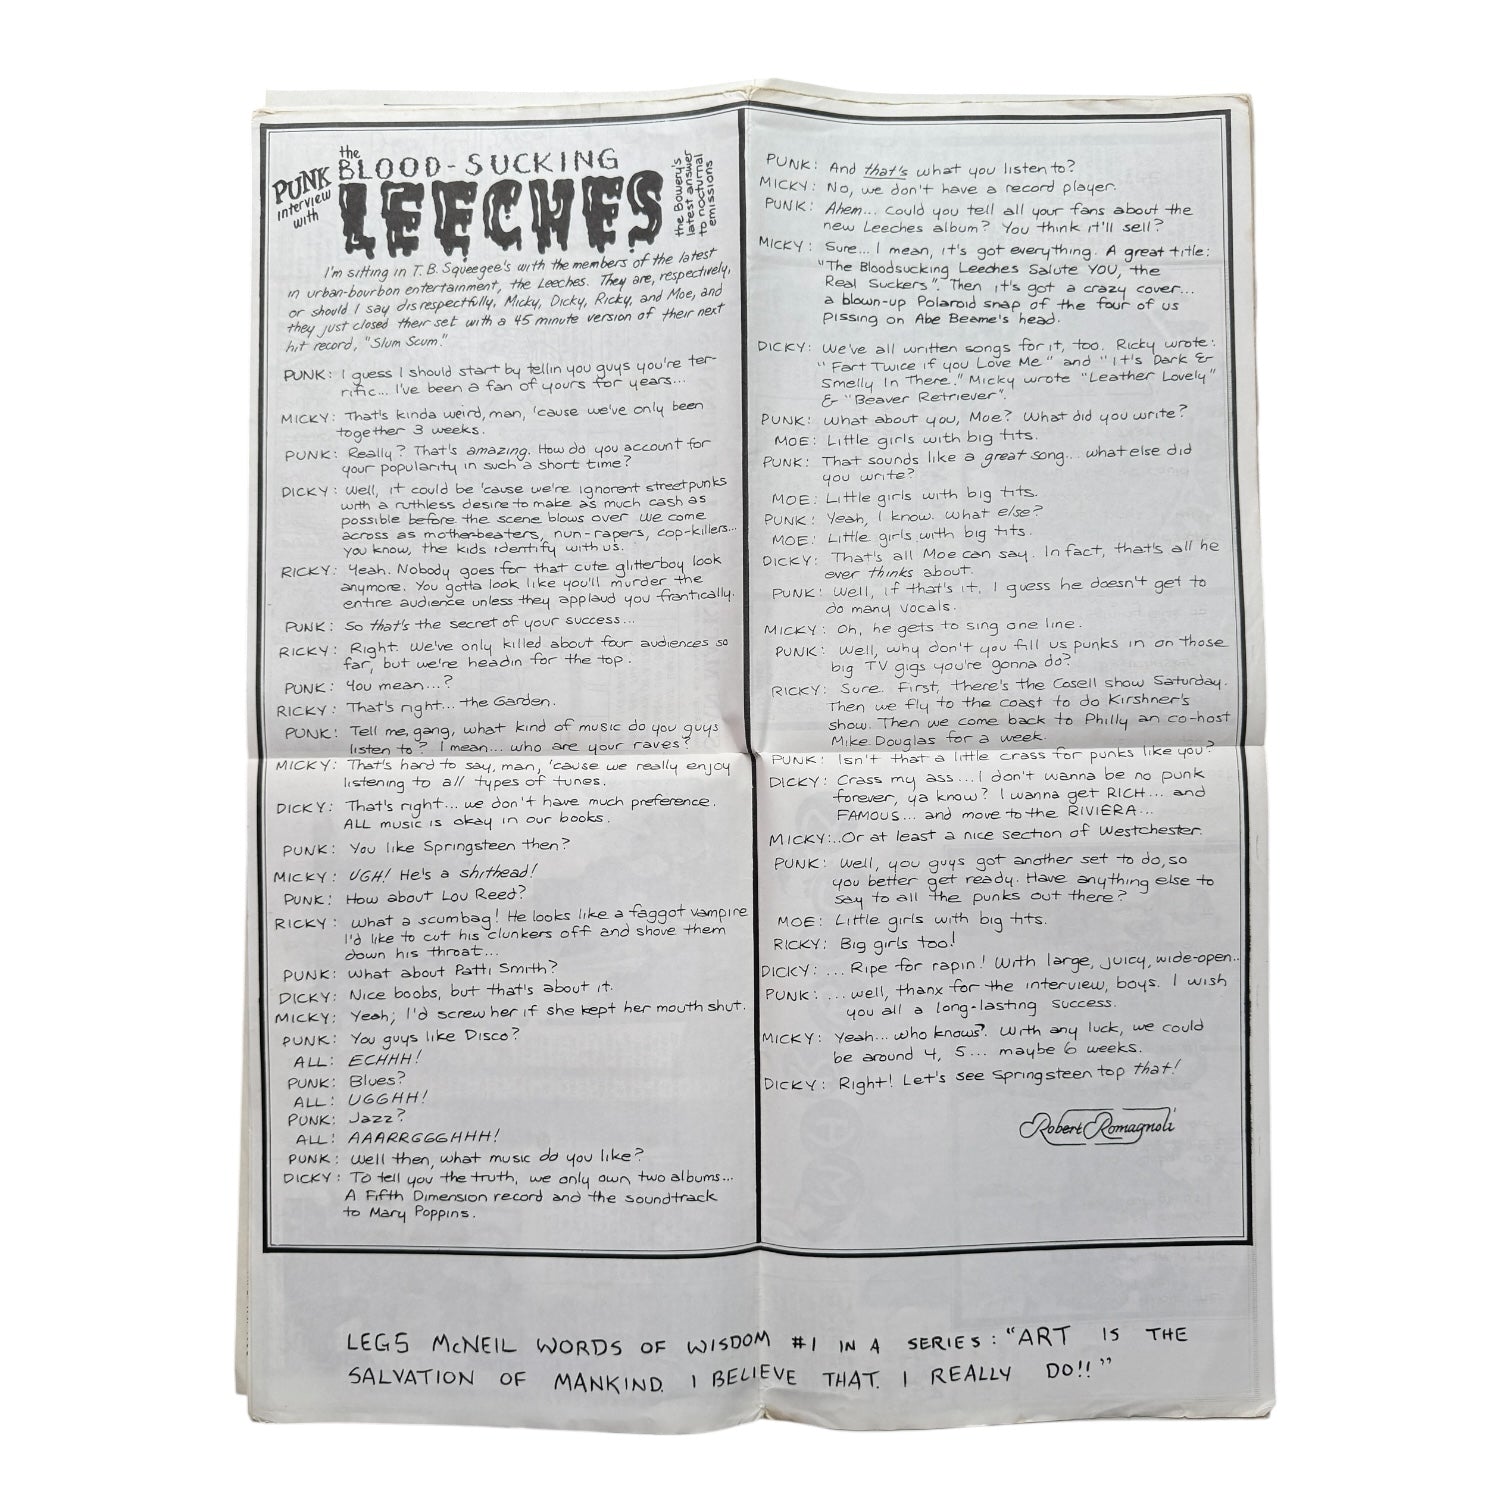 PUNK
interview
with
the
BLOOD-SUCKING
LEECHES
the Bowery's
latest answer
to nocturnal
emissions
I'm sitting in T.B. Squeegee's with the members of the latest
in urban-bourbon entertainment, the Leeches. They are, respectively,
or should I say disrespectfully, Micky, Dicky, Ricky, and Moe, and
they just closed their set with a 45 minute version of their next
hit record, "Slum Scum."
PUNK: I guess I should start by tellin you guys you're ter-
rific... I've been a fan of yours for years...
MICKY: That's kinda weird, man, 'cause we've only been
together 3 weeks.
PUNK: Really? That's amazing. How do you account for
your popularity in such a short time?
DICKY: Well, it could be 'cause we're ignorent streetpunks
with a ruthless desire to make as much cash as
possible before the scene blows over. We come
across as mother-beaters, nun-rapers, cop-killers...
you know, the kids identify with us.
RICKY: Yeah. Nobody goes for that cute glitterboy look
anymore. You gotta look like you'll murder the
entire audience unless they applaud you frantically.
PUNK: So that's the secret of your success...
RICKY: Right. We've only killed about four audiences so
far, but we're headin for the top.
PUNK: You mean...?
RICKY: That's right... the Garden.
PUNK: Tell me, gang, what kind of music do you guys
listen to? I mean... who are your raves?
MICKY: That's hard to say, man, 'cause we really enjoy
listening to all types of tunes.
DICKY: That's right... we don't have much preference.
ALL music is okay in our books.
PUNK: You like Springsteen then?
MICKY: UGH! He's a shithead!
PUNK: How about Lou Reed?
RICKY: What a scumbag! He looks like a faggot vampire
I'd like to cut his clunkers off and shove them
down his throat...
PUNK: What about Patti Smith?
DICKY: Nice boobs, but that's about it.
MICKY: Yeah; I'd screw her if she kept her mouth shut.
PUNK: You guys like Disco?
ALL: ECHHH!
PUNK: Blues?
ALL: UGGHH!
PUNK: Jazz?
ALL: AAARRGGGHHH!
PUNK: Well then, what music do you like?
DICKY: To tell you the truth, we only own two albums...
A Fifth Dimension record and the soundtrack
to Mary Poppins.
PUNK: And that's what you listen to?
MICKY: No, we don't have a record player.
PUNK: Ahem... Could you tell all your fans about the
new Leeches album? You think it'll sell?
MICKY: Sure... I mean, it's got everything. A great title:
"The Bloodsucking Leeches Salute YOU, the
Real Suckers". Then it's got a crazy cover...
a blown-up Polaroid snap of the four of us
pissing on Abe Beame's head.
DICKY: We've all written songs for it, too. Ricky wrote:
"Fart Twice if you Love Me" and "It's Dark &
Smelly In There." Micky wrote "Leather Lovely"
& "Beaver Retriever".
PUNK: What about you, Moe? What did you write?
MOE: Little girls with big tits.
PUNK: That sounds like a great song... what else did
you write?
MOE: Little girls with big tits.
PUNK: Yeah, I know. What else?
MOE: Little girls with big tits.
DICKY: That's all Moe can say. In fact, that's all he
ever thinks about.
PUNK: Well, if that's it, I guess he doesn't get to
do many vocals.
MICKY: Oh, he gets to sing one line.
PUNK: Well, why don't you fill us punks in on those
big TV gigs you're gonna do?
RICKY: Sure. First, there's the Cosell show Saturday.
Then we fly to the coast to do Kirshner's
show. Then we come back to Philly an co-host
Mike Douglas for a week.
PUNK: Isn't that a little crass for punks like you?
DICKY: Crass my ass... I don't wanna be no punk
forever, ya know? I wanna get RICH... and
FAMOUS... and move to the RIVIERA...
MICKY:..Or at least a nice section of Westchester.
PUNK: Well, you guys got another set to do, so
you better get ready. Have anything else to
say to all the punks out there?
MOE: Little girls with big tits.
RICKY: Big girls too!
DICKY: ... Ripe for rapin! With large, juicy, wide-open..
PUNK: ... well, thanx for the interview, boys. I wish
you all a long-lasting success.
MICKY: Yeah... who knows? With any luck, we could
be around 4, 5... maybe 6 weeks.
DICKY: Right! Let's see Springsteen top that!
Robert Romagnoli
LEGS McNEIL WORDS OF WISDOM #1 IN A SERIES: "ART IS THE
SALVATION OF MANKIND. I BELIEVE THAT. I REALLY DO!!"